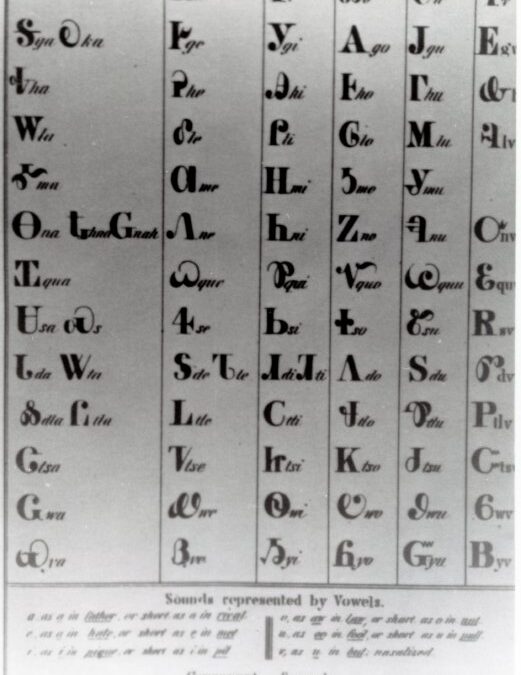 Ꭶga Ꭷka Ꭸge Ꭹgi Ꭺgo Ꭻgu Ꭼgv
Ꭽha Ꭾhe Ꭿhi Ꮀho Ꮁhu Ꮂ
Ꮃla Ꮄle Ꮅli Ꮆlo Ꮇlu Ꮈlv
Ꮉma Ꮊme Ꮋmi Ꮌmo Ꮍmu
Ꮎna Ꮏhna Ꮐnah Ꮑne Ꮒni Ꮓno Ꮔnu Ꮕnv
Ꮖqua Ꮗque Ꮘqui Ꮙquo Ꮚquu Ꮛqu
Ꮜsa Ꮝs Ꮞse Ꮟsi Ꮠso Ꮡsu Ꮢsv
Ꮣda Ꮤta Ꮥde Ꮦte Ꮧdi Ꮨti Ꮩdo Ꮪdu Ꮫdv
Ꮬdla Ꮭtla Ꮮtle Ꮯtli Ꮰtlo Ꮱtlu Ꮲtlv
Ꮳtsa Ꮴtse Ꮵtsi Ꮶtso Ꮷtsu Ꮸtsv
Ꮹwa Ꮺwe Ꮻwi Ꮼwo Ꮽwu Ꮾwv
Ꮿya Ᏸye Ᏹyi Ᏺyo Ᏻyu Ᏼyv
Sounds represented by Vowels.
a, as a in father, or short as a in rival
e, as a in hate, or short as e in met
i, as i in pique, or short as i in pit
o, as aw in law, or short as o in not
u, as oo in fool, or short as u in pull
v, as u in but, nasalized